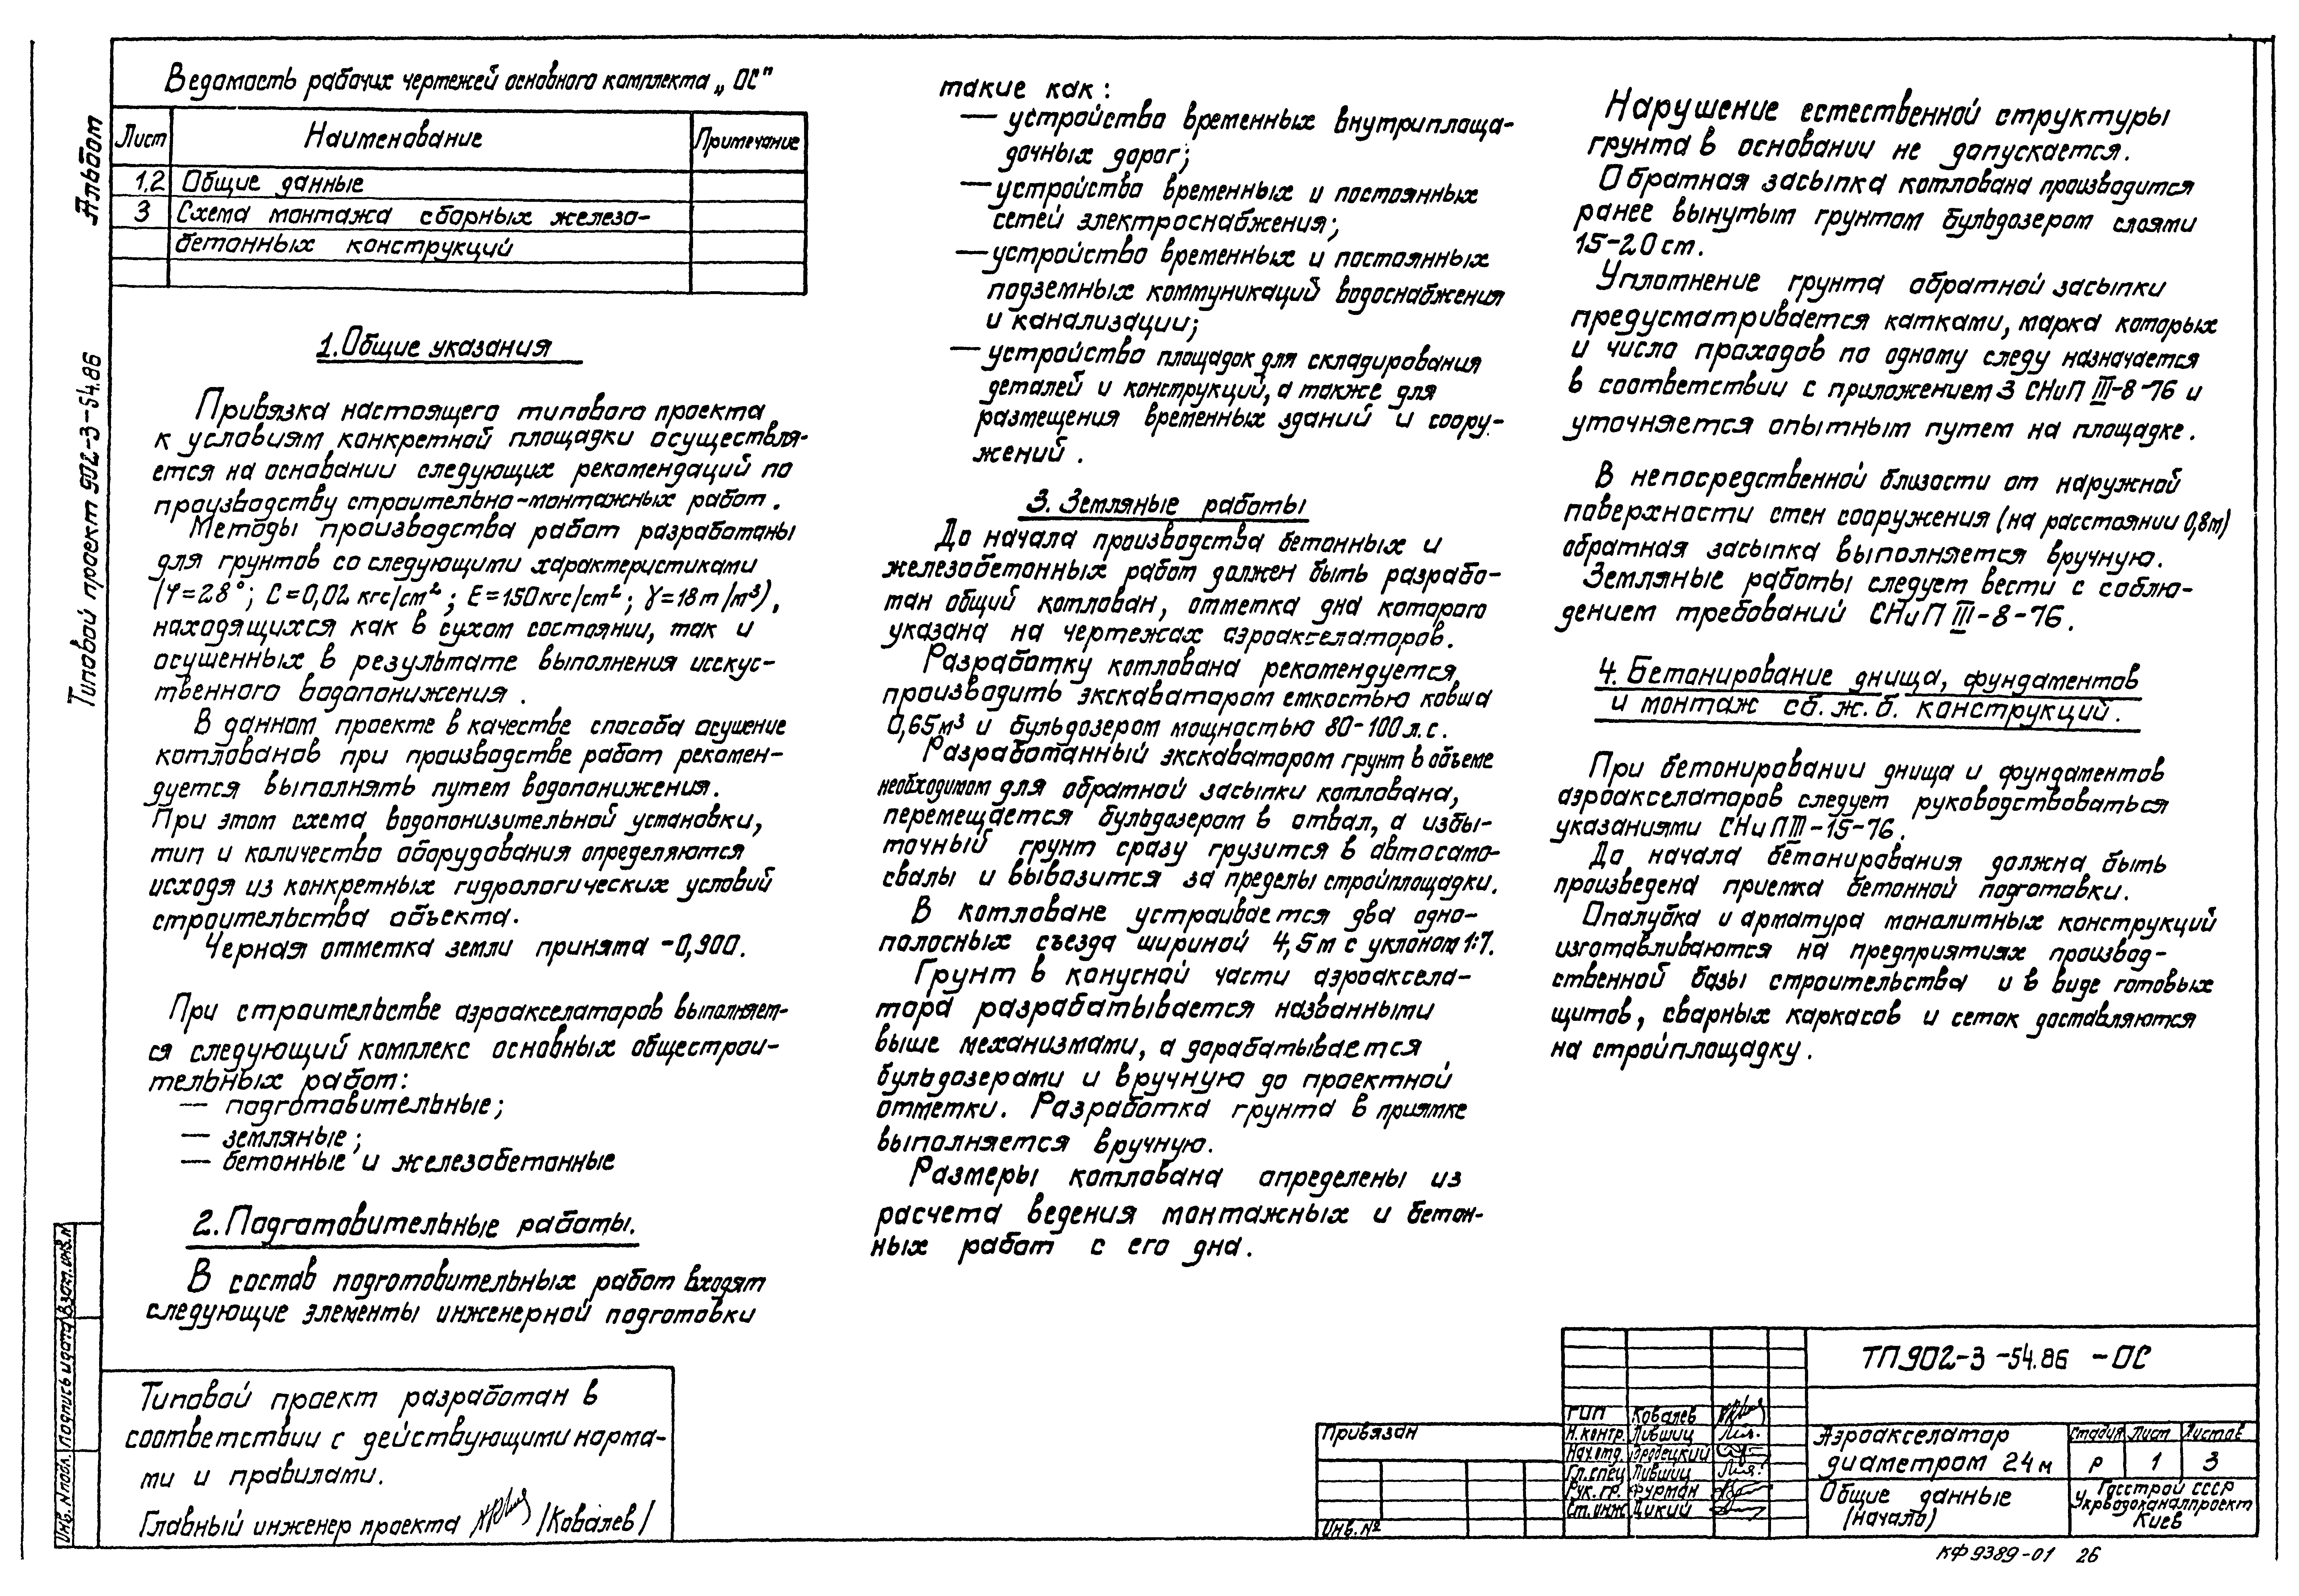 Альбом
Типовой проект 902-3-54.86
Ведомость рабочих чертежей основного комплекта „ОС"
Лист Наименование Примечание
1.2 Общие данные
3 Схема монтажа сборных железо-
бетонных конструкций
1. Общие указания
Привязка настоящего типового проекта
к условиям конкретной площадки осуществля-
ется на основании следующих рекомендаций по
производству строительно-монтажных работ.
Методы производства работ разработаны
для грунтов со следующими характеристиками
(φ=28°; C=0,02 кгс/см²; E=150 кгс/см²; γ=18т/м³),
находящихся как в сухом состоянии, так и
осушенных в результате выполнения исскус-
твенного водопонижения.
В данном проекте в качестве способа осушение
котлованов при производстве работ рекомен-
дуется выполнять путем водопонижения.
При этом схема водопонизительной установки,
тип и количество оборудования определяются
исходя из конкретных гидрологических условий
строительства объекта.
Черная отметка земли принята -0,900.
При строительстве аэроакселаторов выполняет-
ся следующий комплекс основных общестрои-
тельных работ:
— подготовительные;
— земляные;
— бетонные и железобетонные
2. Подготовительные работы.
В состав подготовительных работ входят
следующие элементы инженерной подготовки
такие как:
— устройство временных внутриплоща-
дочных дорог;
— устройство временных и постоянных
сетей электроснабжения;
— устройство временных и постоянных
подземных коммуникаций водоснабжения
и канализации;
— устройство площадок для складирования
деталей и конструкций, а также для
размещения временных зданий и соору-
жений.
3. Земляные работы
До начала производства бетонных и
железобетонных работ должен быть разрабо-
тан общий котлован, отметка дна которого
указана на чертежах аэроакселаторов.
Разработку котлована рекомендуется
производить экскаватором емкостью ковша
0,65 м³ и бульдозером мощностью 80-100 л.с.
Разработанный экскаватором грунт в объеме
необходимом для обратной засыпки котлована,
перемещается бульдозером в отвал, а избы-
точный грунт сразу грузится в автосамо-
свалы и вывозится за пределы стройплощадки.
В котловане устраивается два одно-
полосных съезда шириной 4,5 м с уклоном 1:7.
Грунт в конусной части аэроаксела-
тора разрабатывается названными
выше механизмами, а дорабатывается
бульдозерами и вручную до проектной
отметки. Разработка грунта в приямке
выполняется вручную.
Размеры котлована определены из
расчета ведения монтажных и бетон-
ных работ с его дна.
Нарушение естественной структуры
грунта в основании не допускается.
Обратная засыпка котлована производится
ранее вынутым грунтом бульдозером слоями
15-20 см.
Уплотнение грунта обратной засыпки
предусматривается катками, марка которых
и число проходов по одному следу назначается
в соответствии с приложением 3 СНиП III-8-76 и
уточняется опытным путем на площадке.
В непосредственной близости от наружной
поверхности стен сооружения (на расстоянии 0,8м)
обратная засыпка выполняется вручную.
Земляные работы следует вести с соблю-
дением требований СНиП III-8-76.
4. Бетонирование днища, фундаментов
и монтаж сб. ж. б. конструкций.
При бетонировании днища и фундаментов
аэроакселаторов следует руководствоваться
указаниями СНиП III-15-76.
До начала бетонирования должна быть
произведена приемка бетонной подготовки.
Опалубка и арматура монолитных конструкций
изготавливаются на предприятиях производ-
ственной базы строительства и в виде готовых
щитов, сварных каркасов и сеток доставляются
на стройплощадку.
Инв. N подл. Подпись и дата Взам. инв. N
Типовой проект разработан в
соответствии с действующими норма-
ми и правилами.
Главный инженер проекта /Ковалев/
Привязан
Инв. №
ГИП Ковалев
Н. контр. Лившиц
Нач. отд. Бродецкий
Гл. спец Лившиц
Рук. гр. Фурман
Ст. инж Цикий
ТП 902-3-54.86 -ОС
Аэроакселатор
диаметром 24 м
Стадия Лист Листов
Р 1 3
Общие данные
(начало)
Госстрой СССР
Укрводоканалпроект
Киев
КФ 9389-01 26